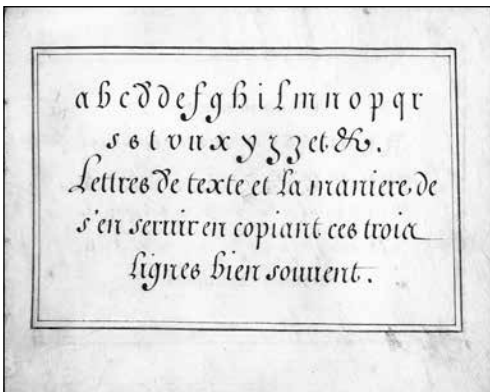 a b c d d e f g h i l m n o p q r
s s t v u x y z z et &.
Lettres de texte et la maniere de
s'en seruir en copiant ces trois
lignes bien souuent.